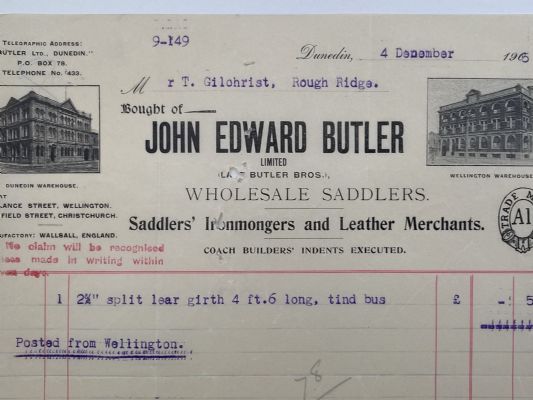 TELEGRAPHIC ADDRESS:
BUTLER LTD., DUNEDIN."
P.O. BOX 78.
TELEPHONE No. 433.
9-149
Dunedin, 4 Denember 1905
M r T. Gilohrist, Rough Ridge.
Bought of
JOHN EDWARD BUTLER
LIMITED
(LATE BUTLER BROS.),
WHOLESALE SADDLERS.
Saddlers' Ironmongers and Leather Merchants.
COACH BUILDERS' INDENTS EXECUTED.
DUNEDIN WAREHOUSE.
WELLINGTON WAREHOUSE
AT
LANCE STREET, WELLINGTON.
FIELD STREET, CHRISTCHURCH.
UFACTORY: WALSALL, ENGLAND.
TRADE M
A1
No claim will be recognised
less made in writing within
ven days.
1 2¼" split lear girth 4 ft.6 long, tind bus £ - 5
Posted from Wellington.
78